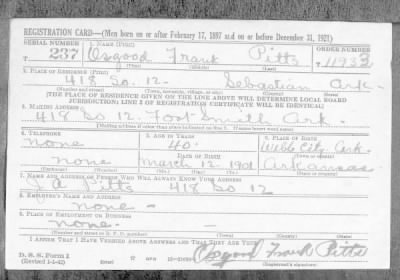 REGISTRATION CARD—(Men born on or after February 17, 1897 and on or before December 31, 1921)
SERIAL NUMBER 1. NAME (Print) ORDER NUMBER
T 237 Osgood Frank Pitts T 11933
(First) (Middle) (Last)
2. PLACE OF RESIDENCE (Print)
418 So. 12 - Sebastian Ark.
(Number and street) (Town, township, village, or city) (County) (State)
[THE PLACE OF RESIDENCE GIVEN ON THE LINE ABOVE WILL DETERMINE LOCAL BOARD
JURISDICTION; LINE 2 OF REGISTRATION CERTIFICATE WILL BE IDENTICAL]
3. MAILING ADDRESS
418 So 12 Fort Smith Ark.
[Mailing address if other than place indicated on line 2. If same insert word same]
4. TELEPHONE 5. AGE IN YEARS 6. PLACE OF BIRTH
none 40 Webb City Ark.
DATE OF BIRTH (Town or county)
none March 12 1901 Arkansas
(Mo.) (Day) (Yr.) (State or country)
7. NAME AND ADDRESS OF PERSON WHO WILL ALWAYS KNOW YOUR ADDRESS
J. A. Pitts 418 So 12
8. EMPLOYER'S NAME AND ADDRESS
none -
9. PLACE OF EMPLOYMENT OR BUSINESS
none -
(Number and street or R. F. D. number) (Town) (County) (State)
I AFFIRM THAT I HAVE VERIFIED ABOVE ANSWERS AND THAT THEY ARE TRUE.
D. S. S. Form 1
(Revised 1-1-42) Osgood Frank Pitts
(Registrant's signature)